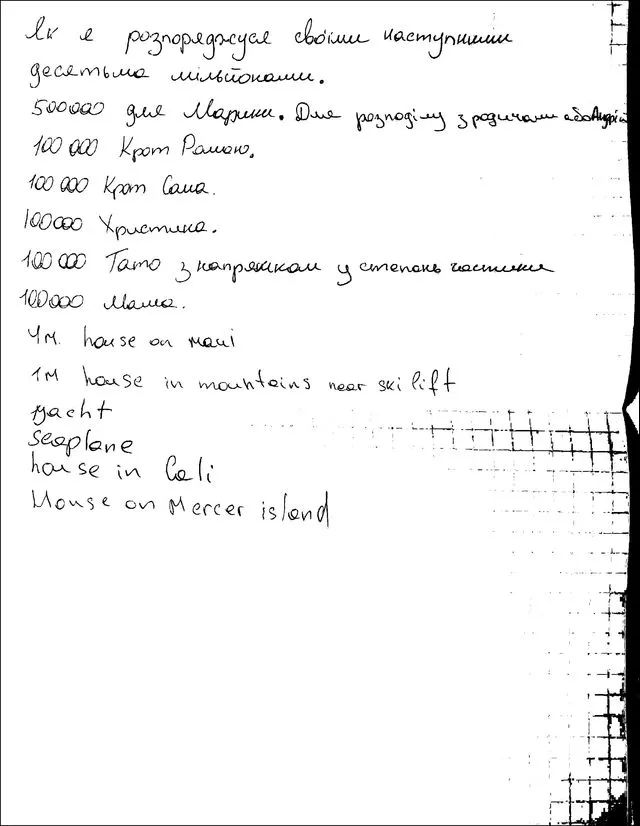 Як я розпоряджуся своїми наступними
десятьма мільйонами.
500000 для Марини. Для розподілу з родичами або Андрій
100 000 Крот Роману.
100 000 Крот Саша.
100000 Христина.
100 000 Тато з напряжком у степень частини
100000 Мама.
4м. house on maui
1М house in mountains near ski lift
yacht
Seaplane
house in Cali
House on Mercer island